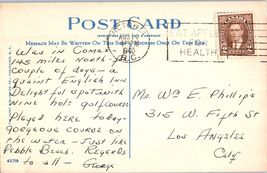 POST CARD
MESSAGE MAY BE WRITTEN ON THIS SIDE
ADDRESS ONLY ON THIS SIDE
EAT APPLES
HEALTH
B.C.
2
Was in Comox –
145 miles north – a
Couple of days – a
Quaint English Inn
Delightful spot with
nine hole golf course
Played here today –
gorgeous course on
the water – Just like
Pebble Beach. Regards
to all – George
Mr. Wm E. Phillips
315 W. Fifth St
Los Angeles
Calif